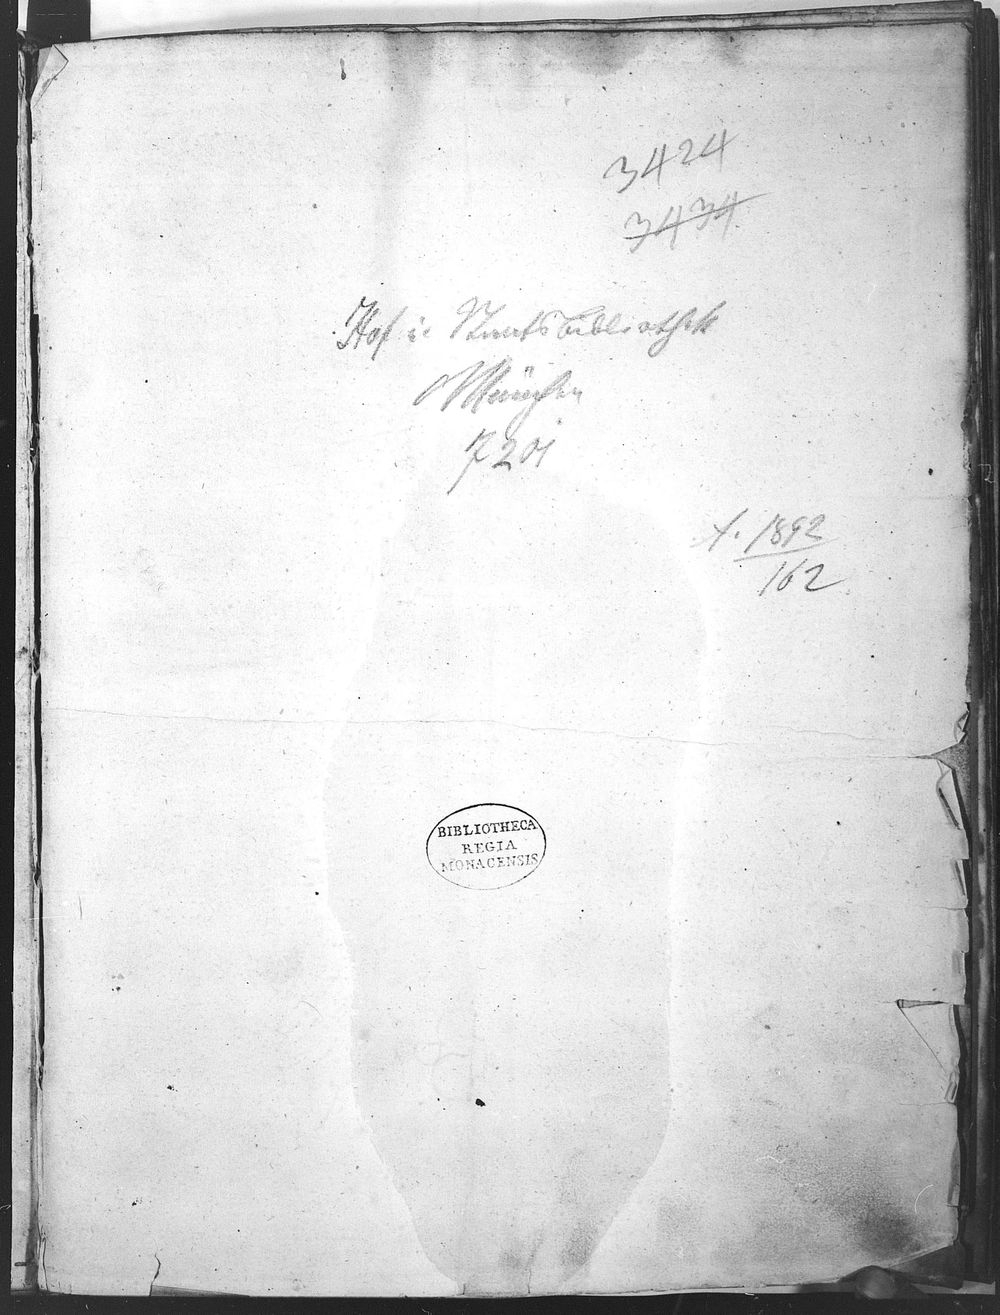 3424
3434
Hof u Staatsbibliothek
München
A. 1892
162
BIBLIOTHECA
REGIA
MONACENSIS